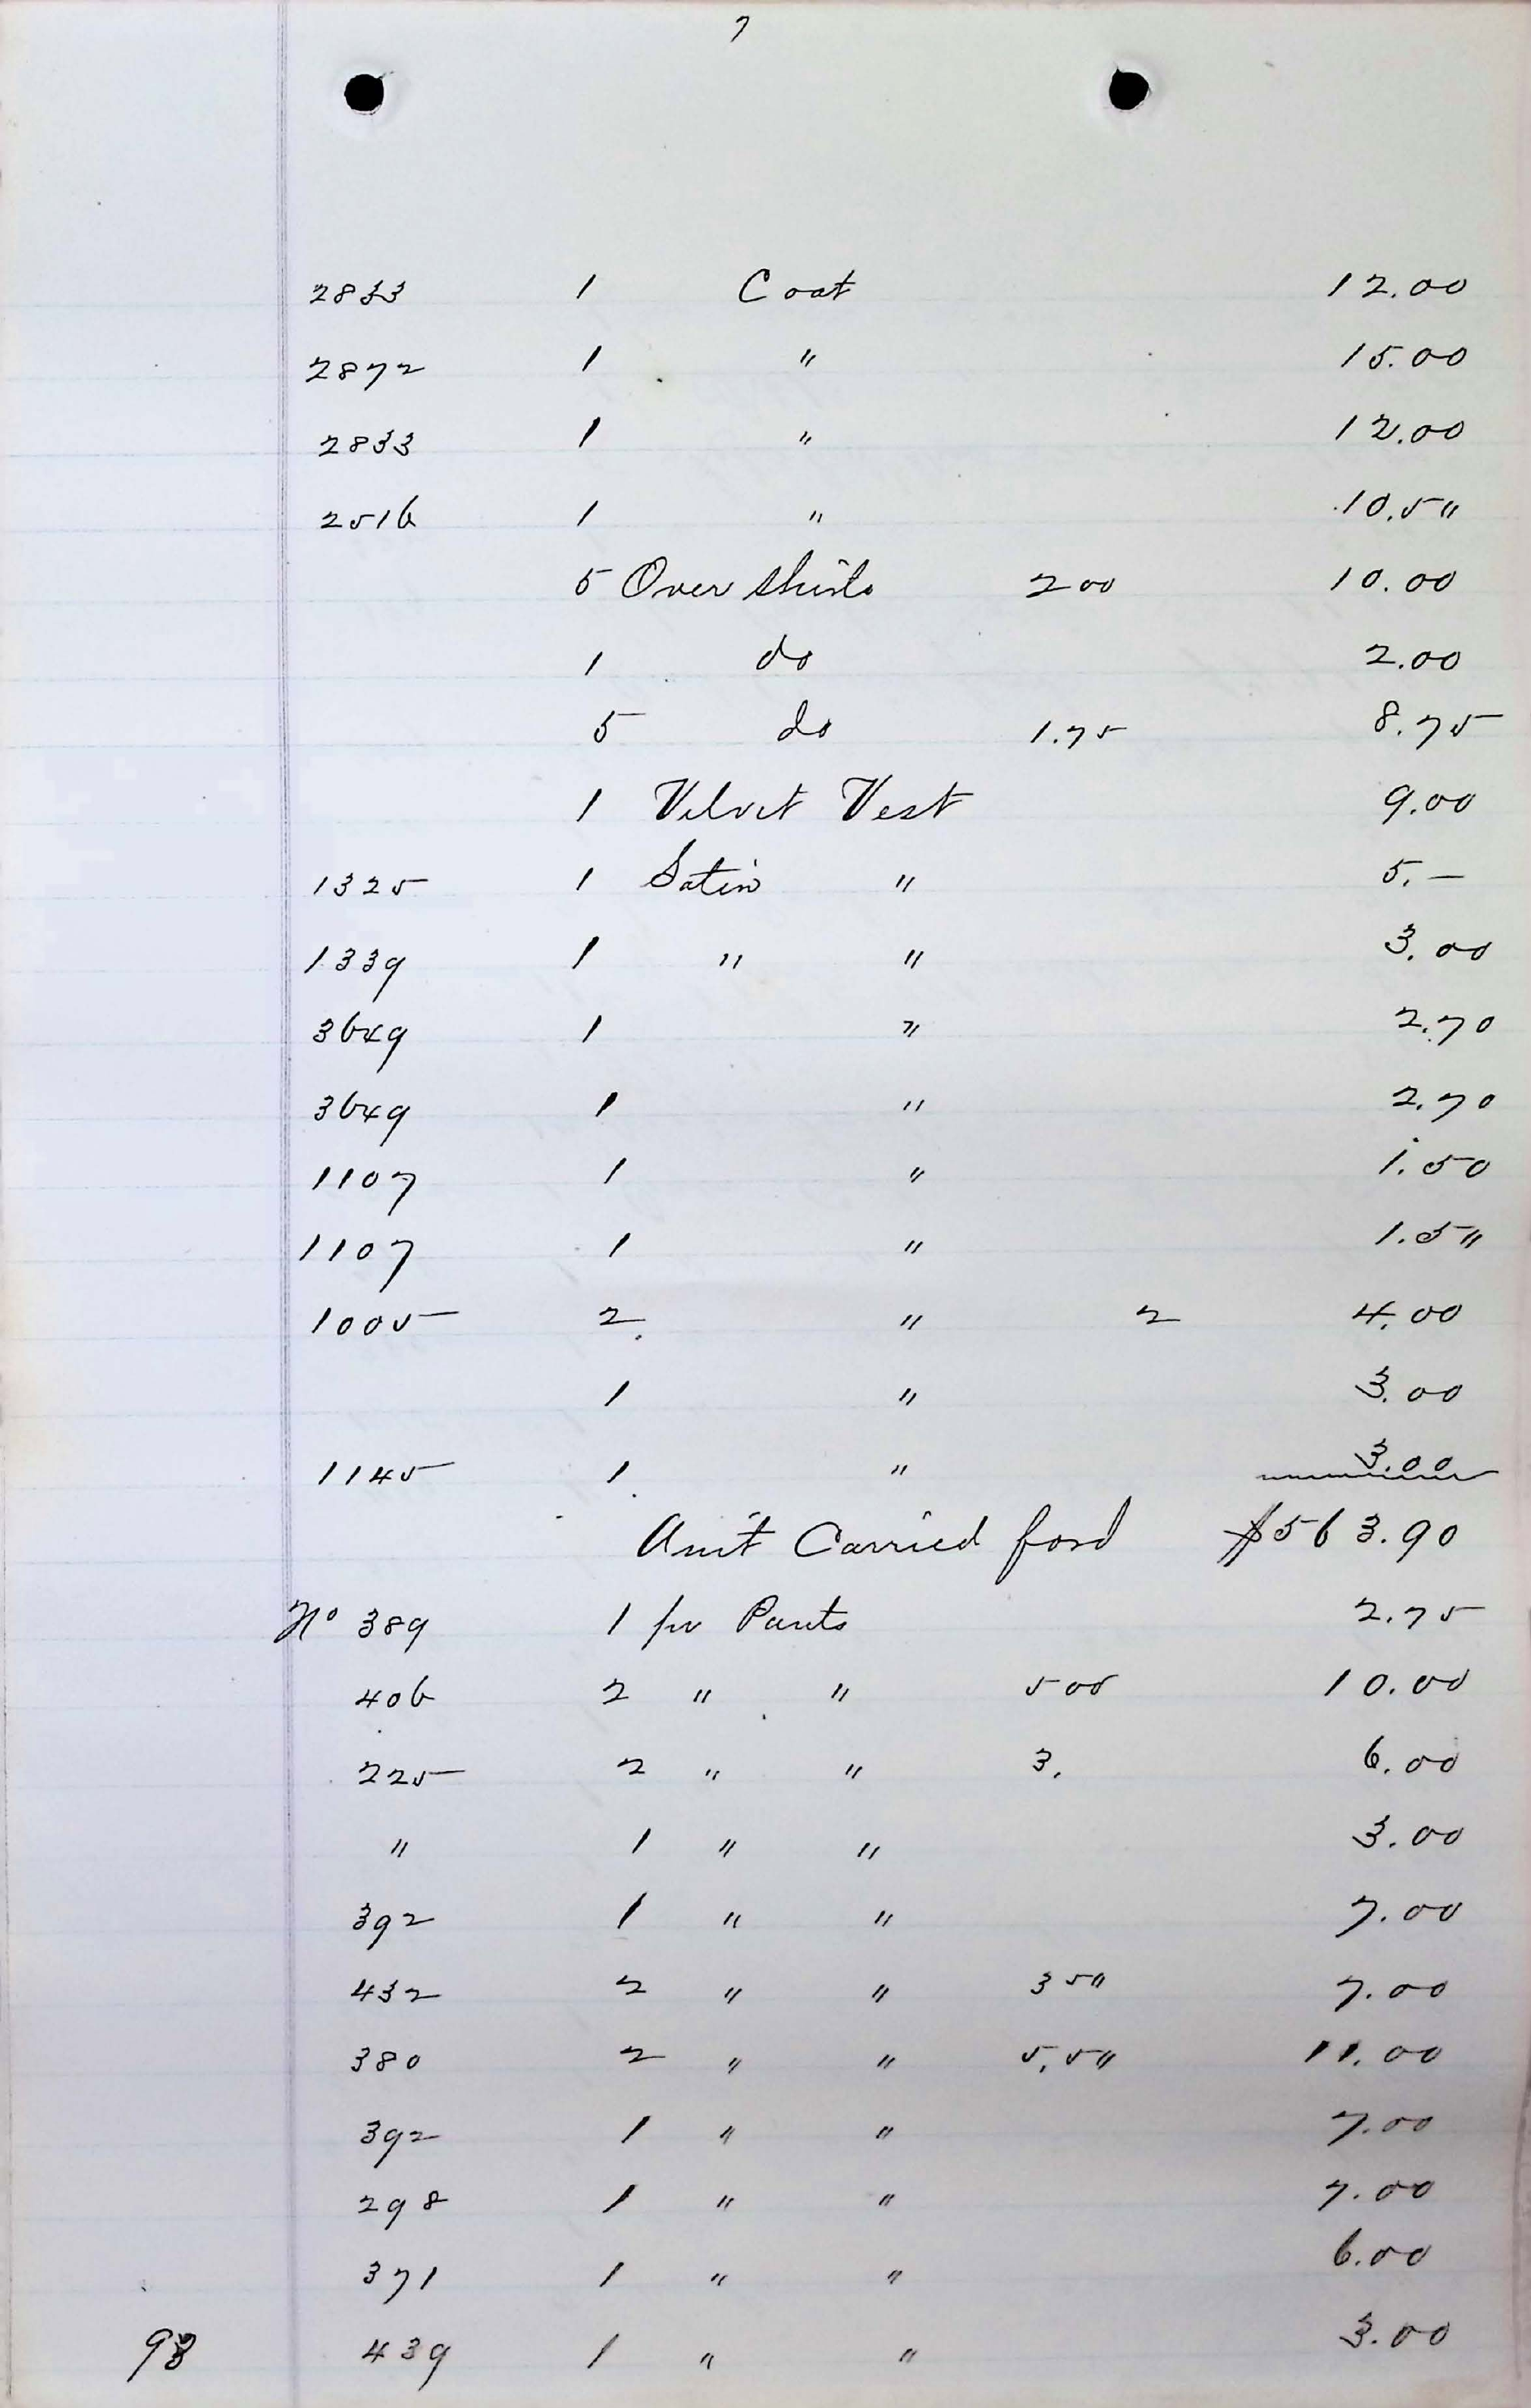 7
2833 1 Coat 12.00
2872 1 " 15.00
2833 1 " 12.00
2516 1 " 10.5"
5 Over Shirts 200 10.00
1 do 2.00
5 do 1.75 8.75
1 Velvet Vest 9.00
1325 1 Satin " 5.—
1339 1 " " 3.00
3649 1 " 2.70
3649 1 " 2.70
1107 1 " 1.50
1107 1 " 1.5"
1005 2 " 2 4.00
1 " 3.00
1145 1 " 3.00
Amt Carried ford $563.90
No 389 1 pr Pants 2.75
406 2 " " 500 10.00
225 2 " " 3. 6.00
" 1 " " 3.00
392 1 " " 7.00
432 2 " " 35" 7.00
380 2 " " 5.5" 11.00
392 1 " " 7.00
298 1 " " 7.00
371 1 " " 6.00
93 439 1 " " 3.00